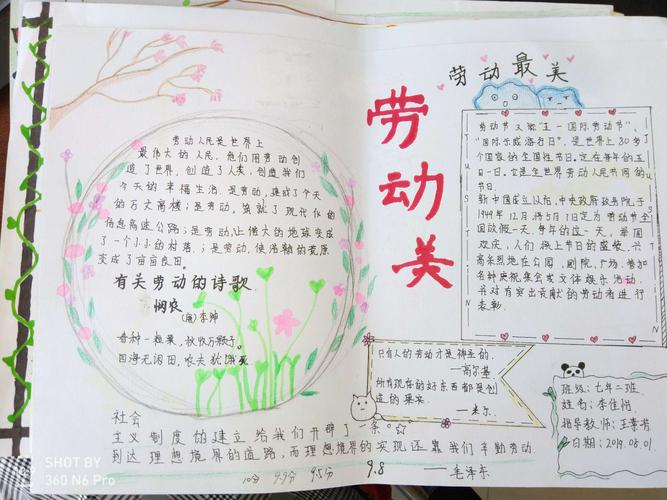 劳动最美
劳动美
劳动人民是世界上
最伟大的人民，他们用劳动创
造了世界，创造了人类，创造我们
今天的幸福生活，是劳动，建成了今天
的万丈高楼；是劳动，筑就了现代化的
信息高速公路；是劳动，让偌大的地球变成
了一个小小的村落；是劳动，使浩翰的荒原
变成了亩亩良田。
有关劳动的诗歌
悯农
(唐)李绅
春种一粒粟，秋收万颗子。
四海无闲田，农夫犹饿死
劳动节又称"五一国际劳动节"、
"国际示威游行日"，是世界上80多个
国家的全国性节日，定在每年的五
月一日。它是全世界劳动人民共同的
节日。
新中国成立以后，中央政府政务院于
1949年12月将5月1日定为劳动节全
国放假一天，每年的这一天，举国
欢庆，人们换上节日的盛装，兴
高采烈地在公园，剧院，广场，参加
各种庆祝集会或文体娱乐活动，
并对有突出贡献的劳动者进行
表彰。
只有人的劳动才是神圣的。
—高尔基
所有现存的好东西都是创
造的果实。
—米尔
班级：七年二班
姓名：李佳怡
指导教师：王
日期：2019.05.01.
社会
主义制度的建立给我们开辟了一条
到达理想境界的道路，而理想境界的实现还靠我们辛勤劳动
——毛泽东
10分 9.9分 9.5分 9.8
SHOT BY
360 N6 Pro